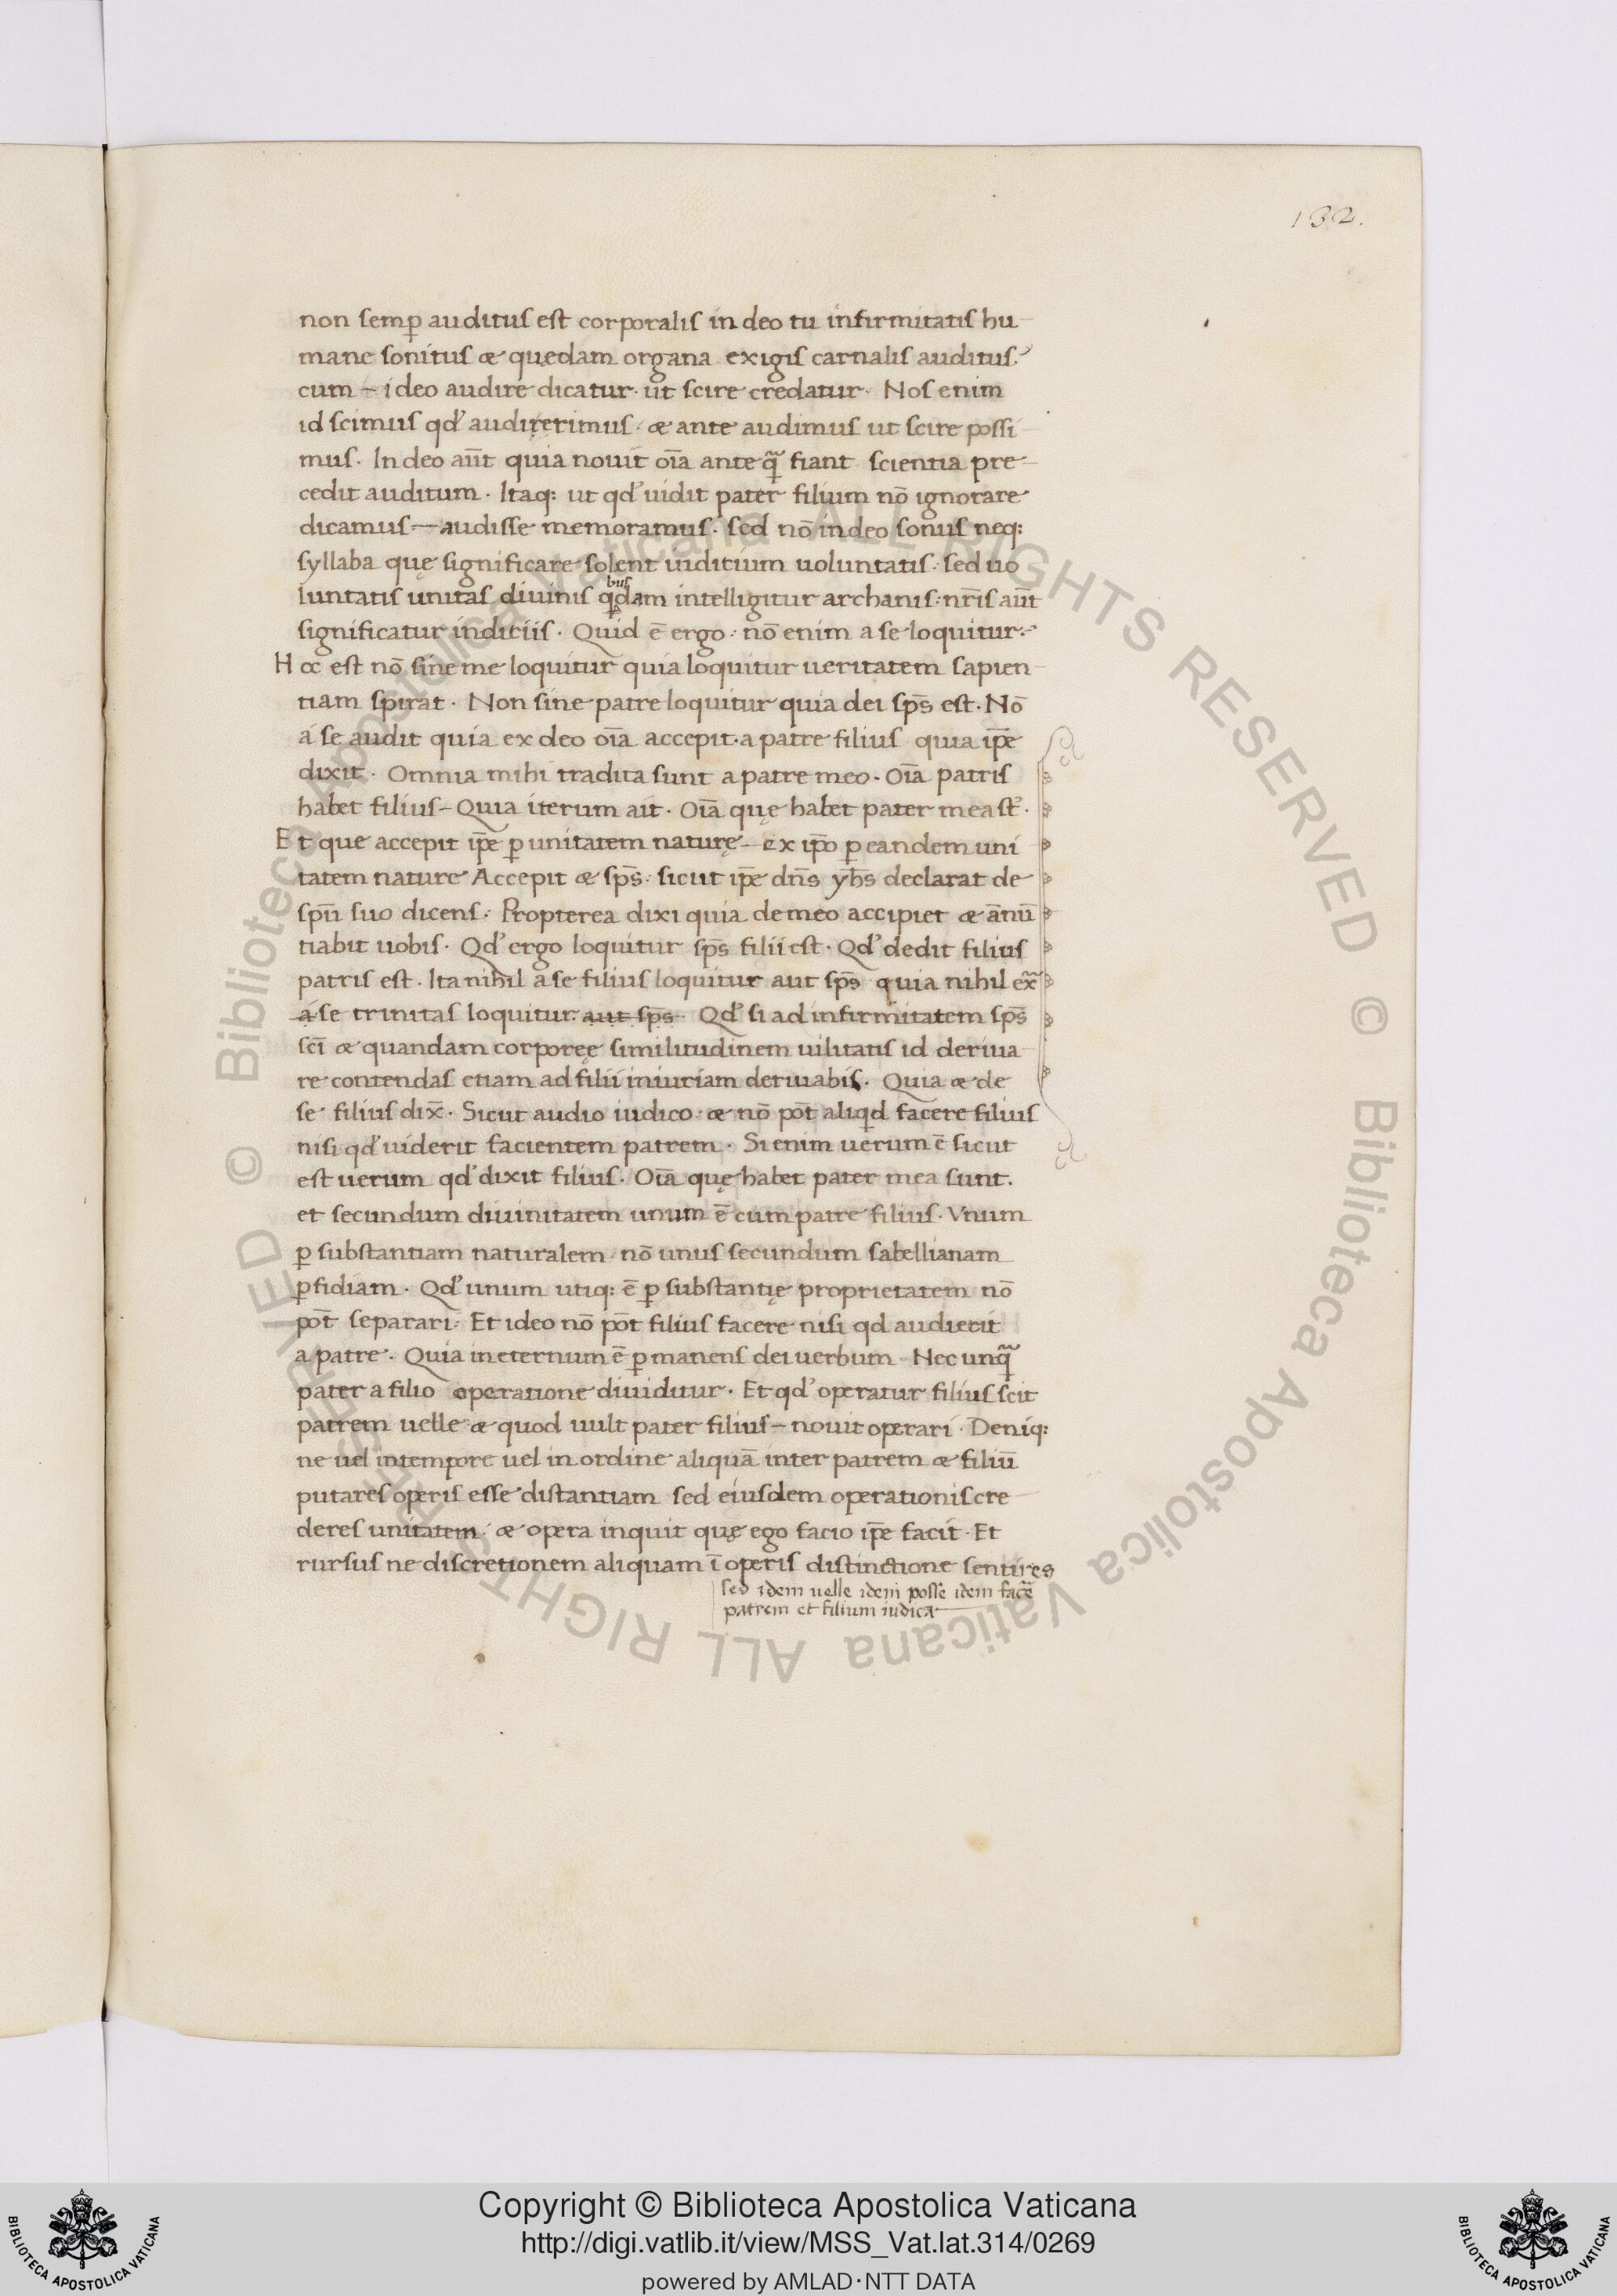 132.
non semꝑ auditus est corporalis in deo tu infirmitatis hu
mane sonitus æ quędam organa exigis carnalis auditus.
cum – ideo audire dicatur· ut scire credatur· Nos enim
id scimus qd' audierimus· æ ante audimus ut scire possi
mus. In deo aūt quia nouit oīa ante q̄ fiant scientia pre
cedit auditum· Itaq: ut qd' uidit pater filium nō ignorare
dicamus — audisse memoramus· sed nō in deo sonus neq:
syllaba quę significare solent uiditium uoluntatis: sed uo
luntatis unitas diuinis qbusdam intelligitur archanis: nr̄is aūt
significatur inditiis· Quid ē ergo: nō enim a se loquitur:
Hoc est nō sine me loquitur quia loquitur ueritatem sapien
tiam spirat· Non sine patre loquitur quia dei sp̄s est· Nō
a se audit quia ex deo oīa accepit· a patre filius quia ip̄e
dixit· Omnia mihi tradita sunt a patre meo· Oīa patris
habet filius – Quia iterum ait· Oīa quę habet pater mea st̄·
Et que accepit ip̄e ꝑ unitatem naturę – ex ip̄o ꝑ eandem uni
tatem nature Accepit æ sp̄s· sicut ip̄e dn̄s yh̄s declarat de
spū suo dicens: Propterea dixi quia de meo accipiet æ ānū
tiabit uobis· Qd' ergo loquitur sp̄s filii est· Qd' dedit filius
patris est· Ita nihil a se filius loquitur aut sp̄s quia nihil ex̄
a se trinitas loquitur: aut sp̄s Qd' si ad infirmitatem sp̄s
scī æ quandam corporęę similitudinem uilitatis id deriua
re contendas etiam ad filii iniuriam deriuabis· Quia æ de
se filius dix̄· Sicut audio iudico· æ nō pōt aliqd facere filius
nisi qd' uiderit facientem patrem· Si enim uerum ē sicut
est uerum qd' dixit filius· Oīa quę habet pater mea sunt.
et secundum diuinitatem unum ē cum patre filius· Vnum
ꝑ substantiam naturalem· nō unus secundum sabellianam
ꝑfidiam· Qd' unum utiq: ē ꝑ substantię proprietatem nō
pōt separari· Et ideo nō pōt filius facere nisi qd audierit
a patre· Quia in eternum ē ꝑmanens dei uerbum· Nec unq̄
pater a filio operatione diuiditur· Et qd' operatur filius scit
patrem uelle æ quod uult pater filius – nouit operari· Deniq:
ne uel in tempore uel in ordine aliquā inter patrem æ filiū
putares operis esse distantiam sed eiusdem operationis cre
deres unitatem· æ opera inquit quę ego facio ip̄e facit· Et
rursus ne discretionem aliquam ī operis distinctione sentires
sed idem uelle idem posse idem fac̄e
patrem et filium iudica
Copyright © Biblioteca Apostolica Vaticana
http://digi.vatlib.it/view/MSS_Vat.lat.314/0269
powered by AMLAD·NTT DATA
BIBLIOTECA APOSTOLICA VATICANA
BIBLIOTECA APOSTOLICA VATICANA
© Biblioteca Apostolica Vaticana ALL RIGHTS RESERVED © Biblioteca Apostolica Vaticana ALL RIGHTS RESERVED